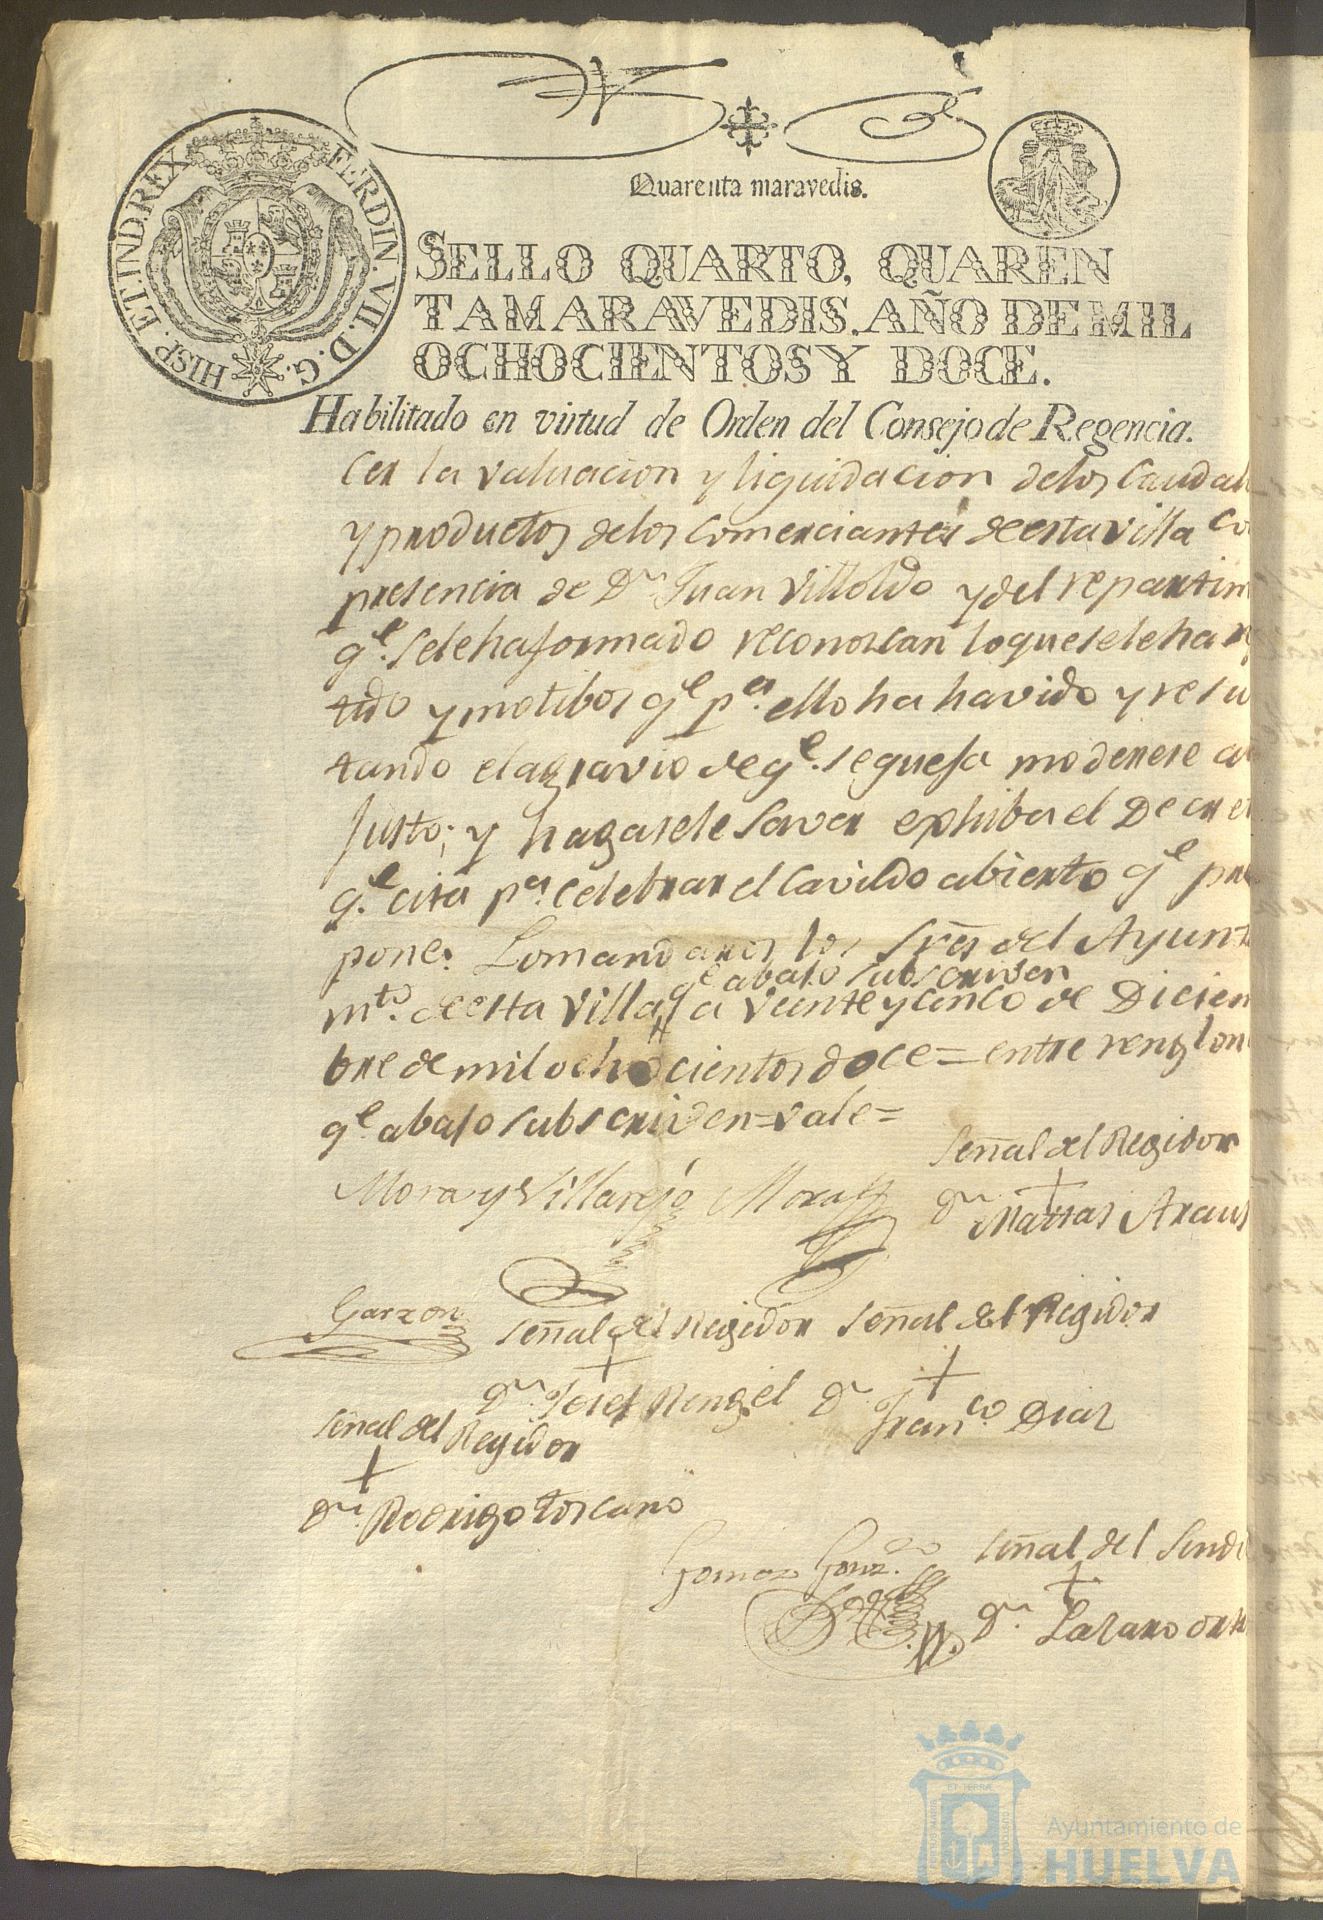 Quarenta maravedis.
HISP. ET IND. REX FERDIN. VII. D. G.
SELLO QUARTO, QUAREN
TA MARAVEDIS, AÑO DE MIL
OCHOCIENTOS Y DOCE.
Habilitado en virtud de Orden del Consejo de Regencia.
cer la valuacion y liquidacion delos Caudal
y productos delos comerciantes deesta villa co
presencia de Dn Juan Villoldo y del repartim
qe. sele ha formado reconoscan lo que sele ha r
tido y motibos qe pa. ello ha havido y resu
tando el agravio de qe. se quexa moderese a
Justo; y hagasele saver exhiba el Decret
qe. cita pa. celebrar el Cavildo abierto qe pro
pone. Lo mandaron los Sres del Ayunt
qe abajo subscriven
mto. deesta villa a veinte y cinco de Diciem
bre de mil ochocientos doce = entre renglon
qe abajo subscriven = vale =
Señal del Regidor
Mora y Villarejo Mora
Dn Matias Araus
Garzon
Señal del Regidor Señal del Regidor
Dn. Josef Rengel Dn Franco. Diaz
Señal del Regidor
Dn. Rodrigo Toscano
Gomez Gonz.
Señal del Sindi
Dn. Lazaro
Ayuntamiento de
HUELVA